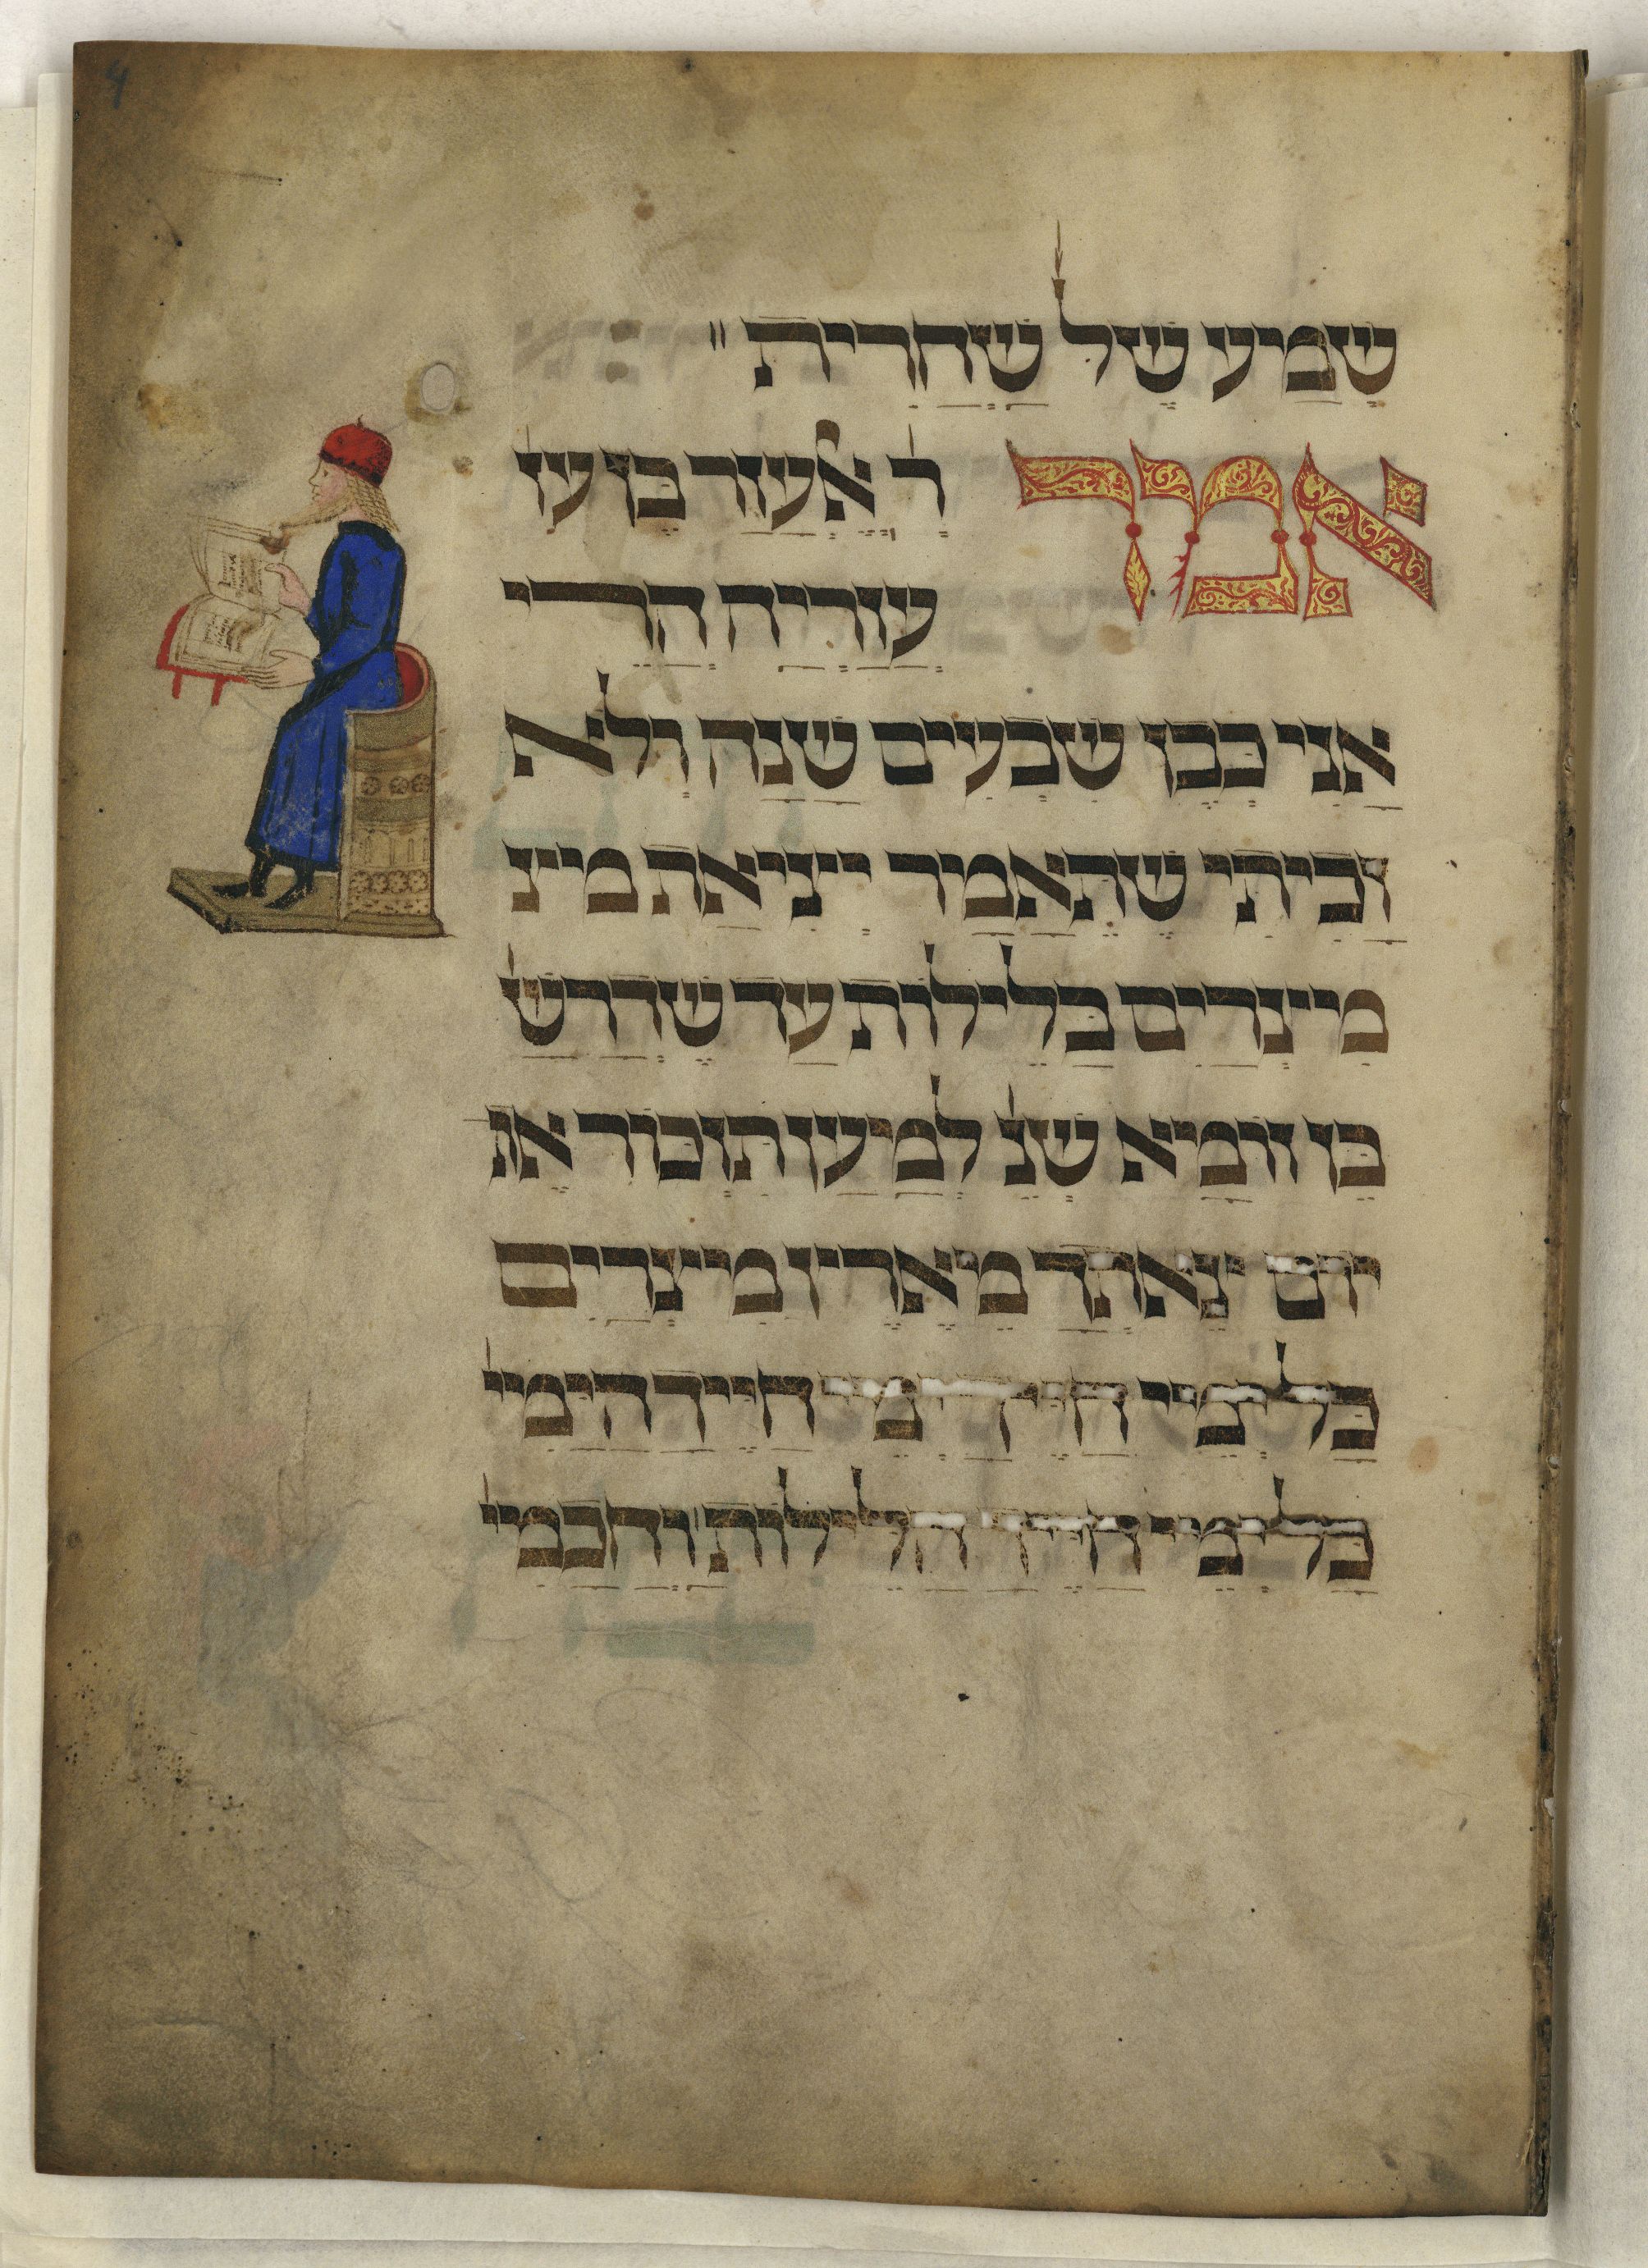 4
שמיע של שחרית "
אמר ר' אלעזר בן עז'
עזריה הרי
אני כבן שבעים שנה ולא
זכיתי שתאמר יציאת מיצ
מיצרים בלילות עד שדרש
בן זומיא שנ' למיען תזכור את
יום צאתך מיארץ מיצרים
כל ימי חייך ימי חייך הימי'
כל ימי חייך הלילות וחכמי'